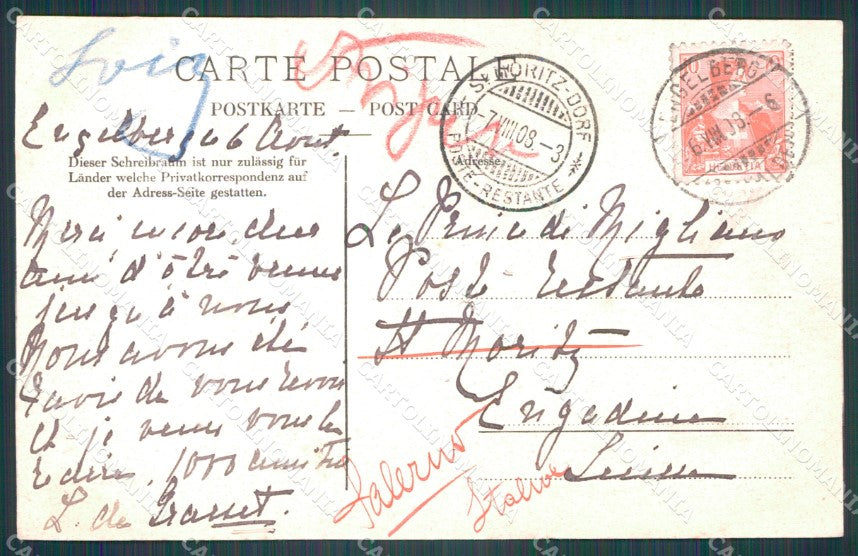 CARTE POSTALE
POSTKARTE — POST CARD
Engelberg 6 Aout.
Dieser Schreibraum ist nur zulässig für
Länder welche Privatkorrespondenz auf
der Adress-Seite gestatten.
(Adresse)
Merci encore cher
ami d'être venu
jusqu'à nous
Nous avons été
ravie de vous revoir
et je veux vous le
redire. 1000 amitiés
L. de
ST MORITZ-DORF
7.VIII.08.-3
POSTE-RESTANTE
ENGELBERG
6.VIII.08.-6
HELVETIA
Le Prince di Migliano
Poste restante
St Moritz
Engadine
Suisse
Salerno
Italie
CARTOLINOMANIA